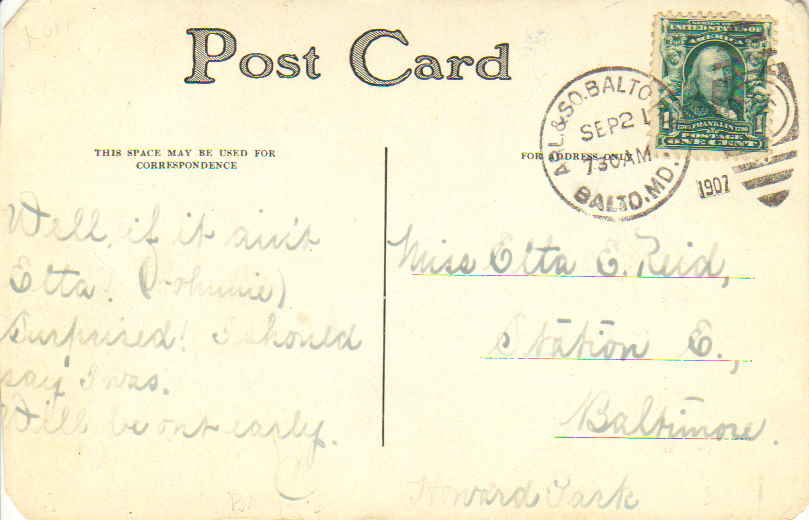 Post Card
THIS SPACE MAY BE USED FOR
CORRESPONDENCE
FOR ADDRESS ONLY
ARL. & SO. BALTO
SEP 21
730 AM
BALTO. MD.
1907
UNITED STATES OF
AMERICA
1 1
FRANKLIN
POSTAGE
ONE CENT
Well, if it ain't
Etta! (Johnnie)
Surprised! I should
say I was.
Will be out early.
Miss Etta E. Reid,
Station E.,
Baltimore.
Howard Park